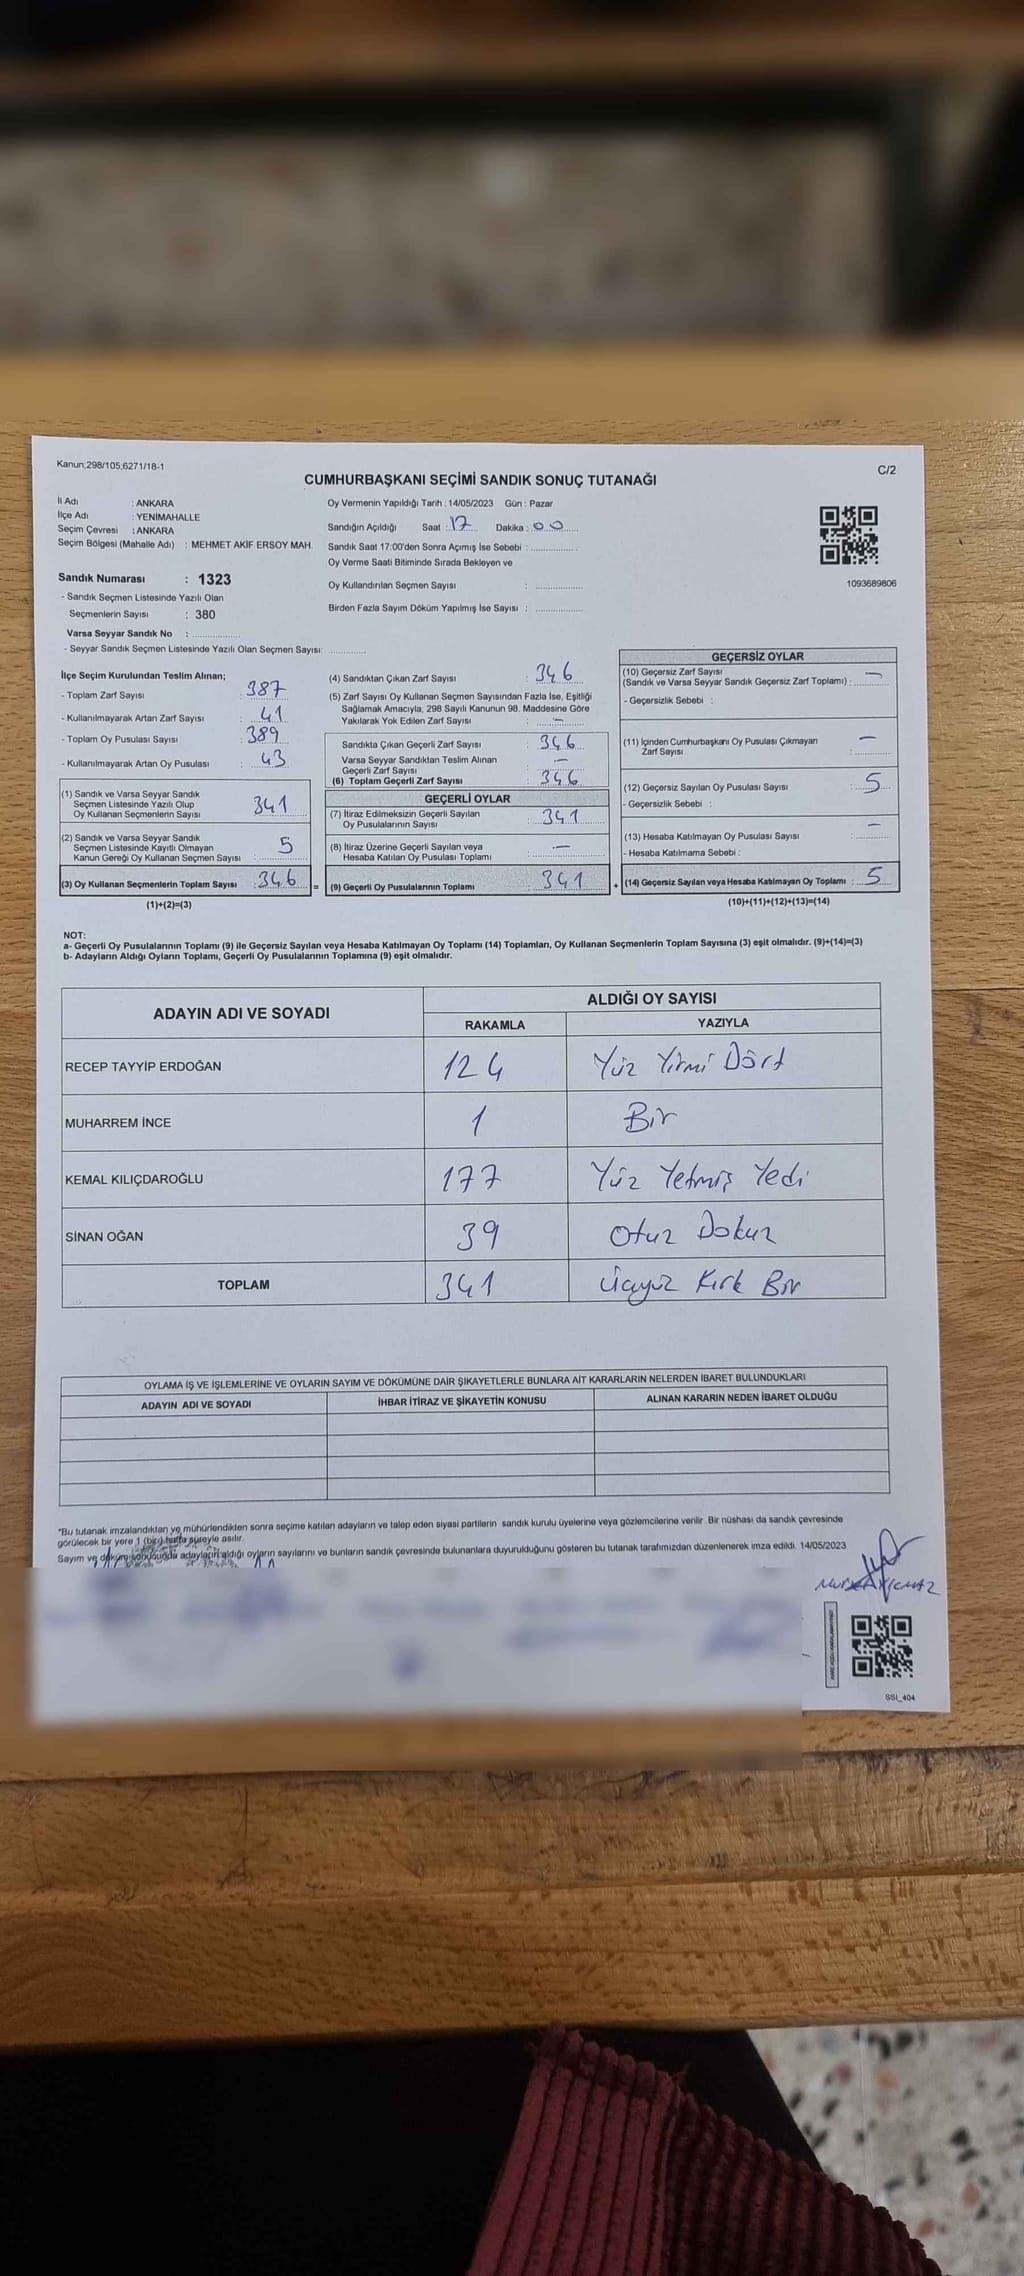 Kanun;298/105;6271/18-1
C/2
CUMHURBAŞKANI SEÇİMİ SANDIK SONUÇ TUTANAĞI
İl Adı : ANKARA
İlçe Adı : YENİMAHALLE
Seçim Çevresi : ANKARA
Seçim Bölgesi (Mahalle Adı) : MEHMET AKİF ERSOY MAH.
Sandık Numarası : 1323
- Sandık Seçmen Listesinde Yazılı Olan
Seçmenlerin Sayısı : 380
Varsa Seyyar Sandık No :
- Seyyar Sandık Seçmen Listesinde Yazılı Olan Seçmen Sayısı:
Oy Vermenin Yapıldığı Tarih : 14/05/2023 Gün : Pazar
Sandığın Açıldığı Saat : 17 Dakika : 00
Sandık Saat 17:00'den Sonra Açımış İse Sebebi :
Oy Verme Saati Bitiminde Sırada Bekleyen ve
Oy Kullandırılan Seçmen Sayısı :
Birden Fazla Sayım Döküm Yapılmış İse Sayısı :
1093689806
İlçe Seçim Kurulundan Teslim Alınan;
- Toplam Zarf Sayısı : 387
- Kullanılmayarak Artan Zarf Sayısı : 41
- Toplam Oy Pusulası Sayısı : 389
- Kullanılmayarak Artan Oy Pusulası : 43
(1) Sandık ve Varsa Seyyar Sandık
Seçmen Listesinde Yazılı Olup
Oy Kullanan Seçmenlerin Sayısı : 341
(2) Sandık ve Varsa Seyyar Sandık
Seçmen Listesinde Kayıtlı Olmayan
Kanun Gereği Oy Kullanan Seçmen Sayısı : 5
(3) Oy Kullanan Seçmenlerin Toplam Sayısı : 346 =
(1)+(2)=(3)
(4) Sandıktan Çıkan Zarf Sayısı : 346
(5) Zarf Sayısı Oy Kullanan Seçmen Sayısından Fazla İse, Eşitliği
Sağlamak Amacıyla; 298 Sayılı Kanunun 98. Maddesine Göre
Yakılarak Yok Edilen Zarf Sayısı : —
Sandıkta Çıkan Geçerli Zarf Sayısı : 346
Varsa Seyyar Sandıktan Teslim Alınan
Geçerli Zarf Sayısı : —
(6) Toplam Geçerli Zarf Sayısı : 346
GEÇERLİ OYLAR
(7) İtiraz Edilmeksizin Geçerli Sayılan
Oy Pusulalarının Sayısı : 341
(8) İtiraz Üzerine Geçerli Sayılan veya
Hesaba Katılan Oy Pusulası Toplamı : —
(9) Geçerli Oy Pusulalarının Toplamı : 341 +
GEÇERSİZ OYLAR
(10) Geçersiz Zarf Sayısı
(Sandık ve Varsa Seyyar Sandık Geçersiz Zarf Toplamı) : —
- Geçersizlik Sebebi :
(11) İçinden Cumhurbaşkanı Oy Pusulası Çıkmayan
Zarf Sayısı : —
(12) Geçersiz Sayılan Oy Pusulası Sayısı : 5
- Geçersizlik Sebebi :
(13) Hesaba Katılmayan Oy Pusulası Sayısı : —
- Hesaba Katılmama Sebebi :
(14) Geçersiz Sayılan veya Hesaba Katılmayan Oy Toplamı : 5
(10)+(11)+(12)+(13)=(14)
NOT:
a- Geçerli Oy Pusulalarının Toplamı (9) ile Geçersiz Sayılan veya Hesaba Katılmayan Oy Toplamı (14) Toplamları, Oy Kullanan Seçmenlerin Toplam Sayısına (3) eşit olmalıdır. (9)+(14)=(3)
b- Adayların Aldığı Oyların Toplamı, Geçerli Oy Pusulalarının Toplamına (9) eşit olmalıdır.
ADAYIN ADI VE SOYADI
ALDIĞI OY SAYISI
RAKAMLA YAZIYLA
RECEP TAYYİP ERDOĞAN 124 Yüz Yirmi Dört
MUHARREM İNCE 1 Bir
KEMAL KILIÇDAROĞLU 177 Yüz Yetmiş Yedi
SİNAN OĞAN 39 Otuz Dokuz
TOPLAM 341 Üçyüz Kırk Bir
OYLAMA İŞ VE İŞLEMLERİNE VE OYLARIN SAYIM VE DÖKÜMÜNE DAİR ŞİKAYETLERLE BUNLARA AİT KARARLARIN NELERDEN İBARET BULUNDUKLARI
ADAYIN ADI VE SOYADI İHBAR İTİRAZ VE ŞİKAYETİN KONUSU ALINAN KARARIN NEDEN İBARET OLDUĞU
*Bu tutanak imzalandıktan ve mühürlendikten sonra seçime katılan adayların ve talep eden siyasi partilerin sandık kurulu üyelerine veya gözlemcilerine verilir. Bir nüshası da sandık çevresinde
görülecek bir yere 1 (bir) hafta süreyle asılır.
Sayım ve döküm sonucunda adayların aldığı oyların sayılarını ve bunların sandık çevresinde bulunanlara duyurulduğunu gösteren bu tutanak tarafımızdan düzenlenerek imza edildi. 14/05/2023
SSI_404